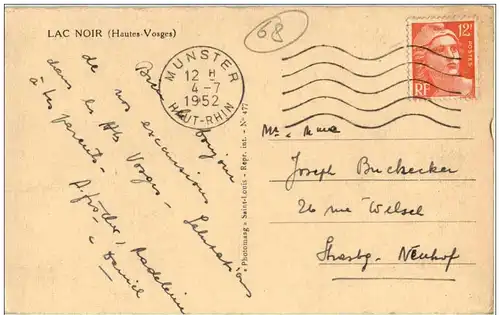 LAC NOIR (Hautes-Vosges)
68
MUNSTER
12 H
4-7
1952
HAUT-RHIN
12F
POSTES
RF
Bien bonjour
de nos excursions
dans les Htes Vosges - Salutations
à tes parents -
Madeleine
« Photomag » Saint-Louis - Repr. int. - N° 477
Mr. & Mme
Joseph Buckecker
26 rue Welsel
Strasbg. Neuhof